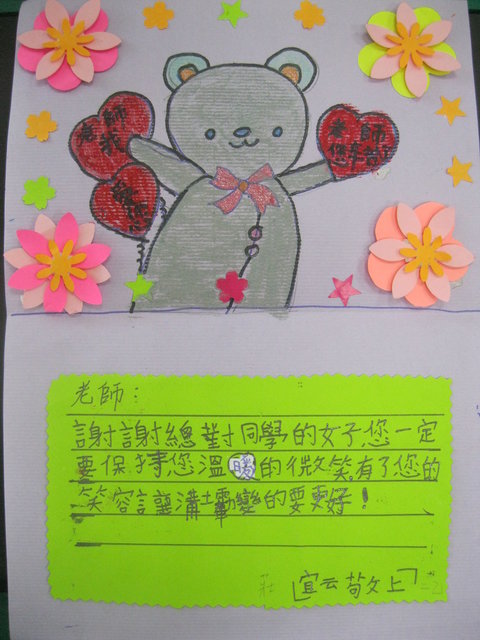 老師
我
愛您
老師
您辛苦了
老師：
謝謝總對同學的好您一定
要保持您溫暖的微笑。有了您的
笑容讓溝壩變的要更好！
莊宜云敬上